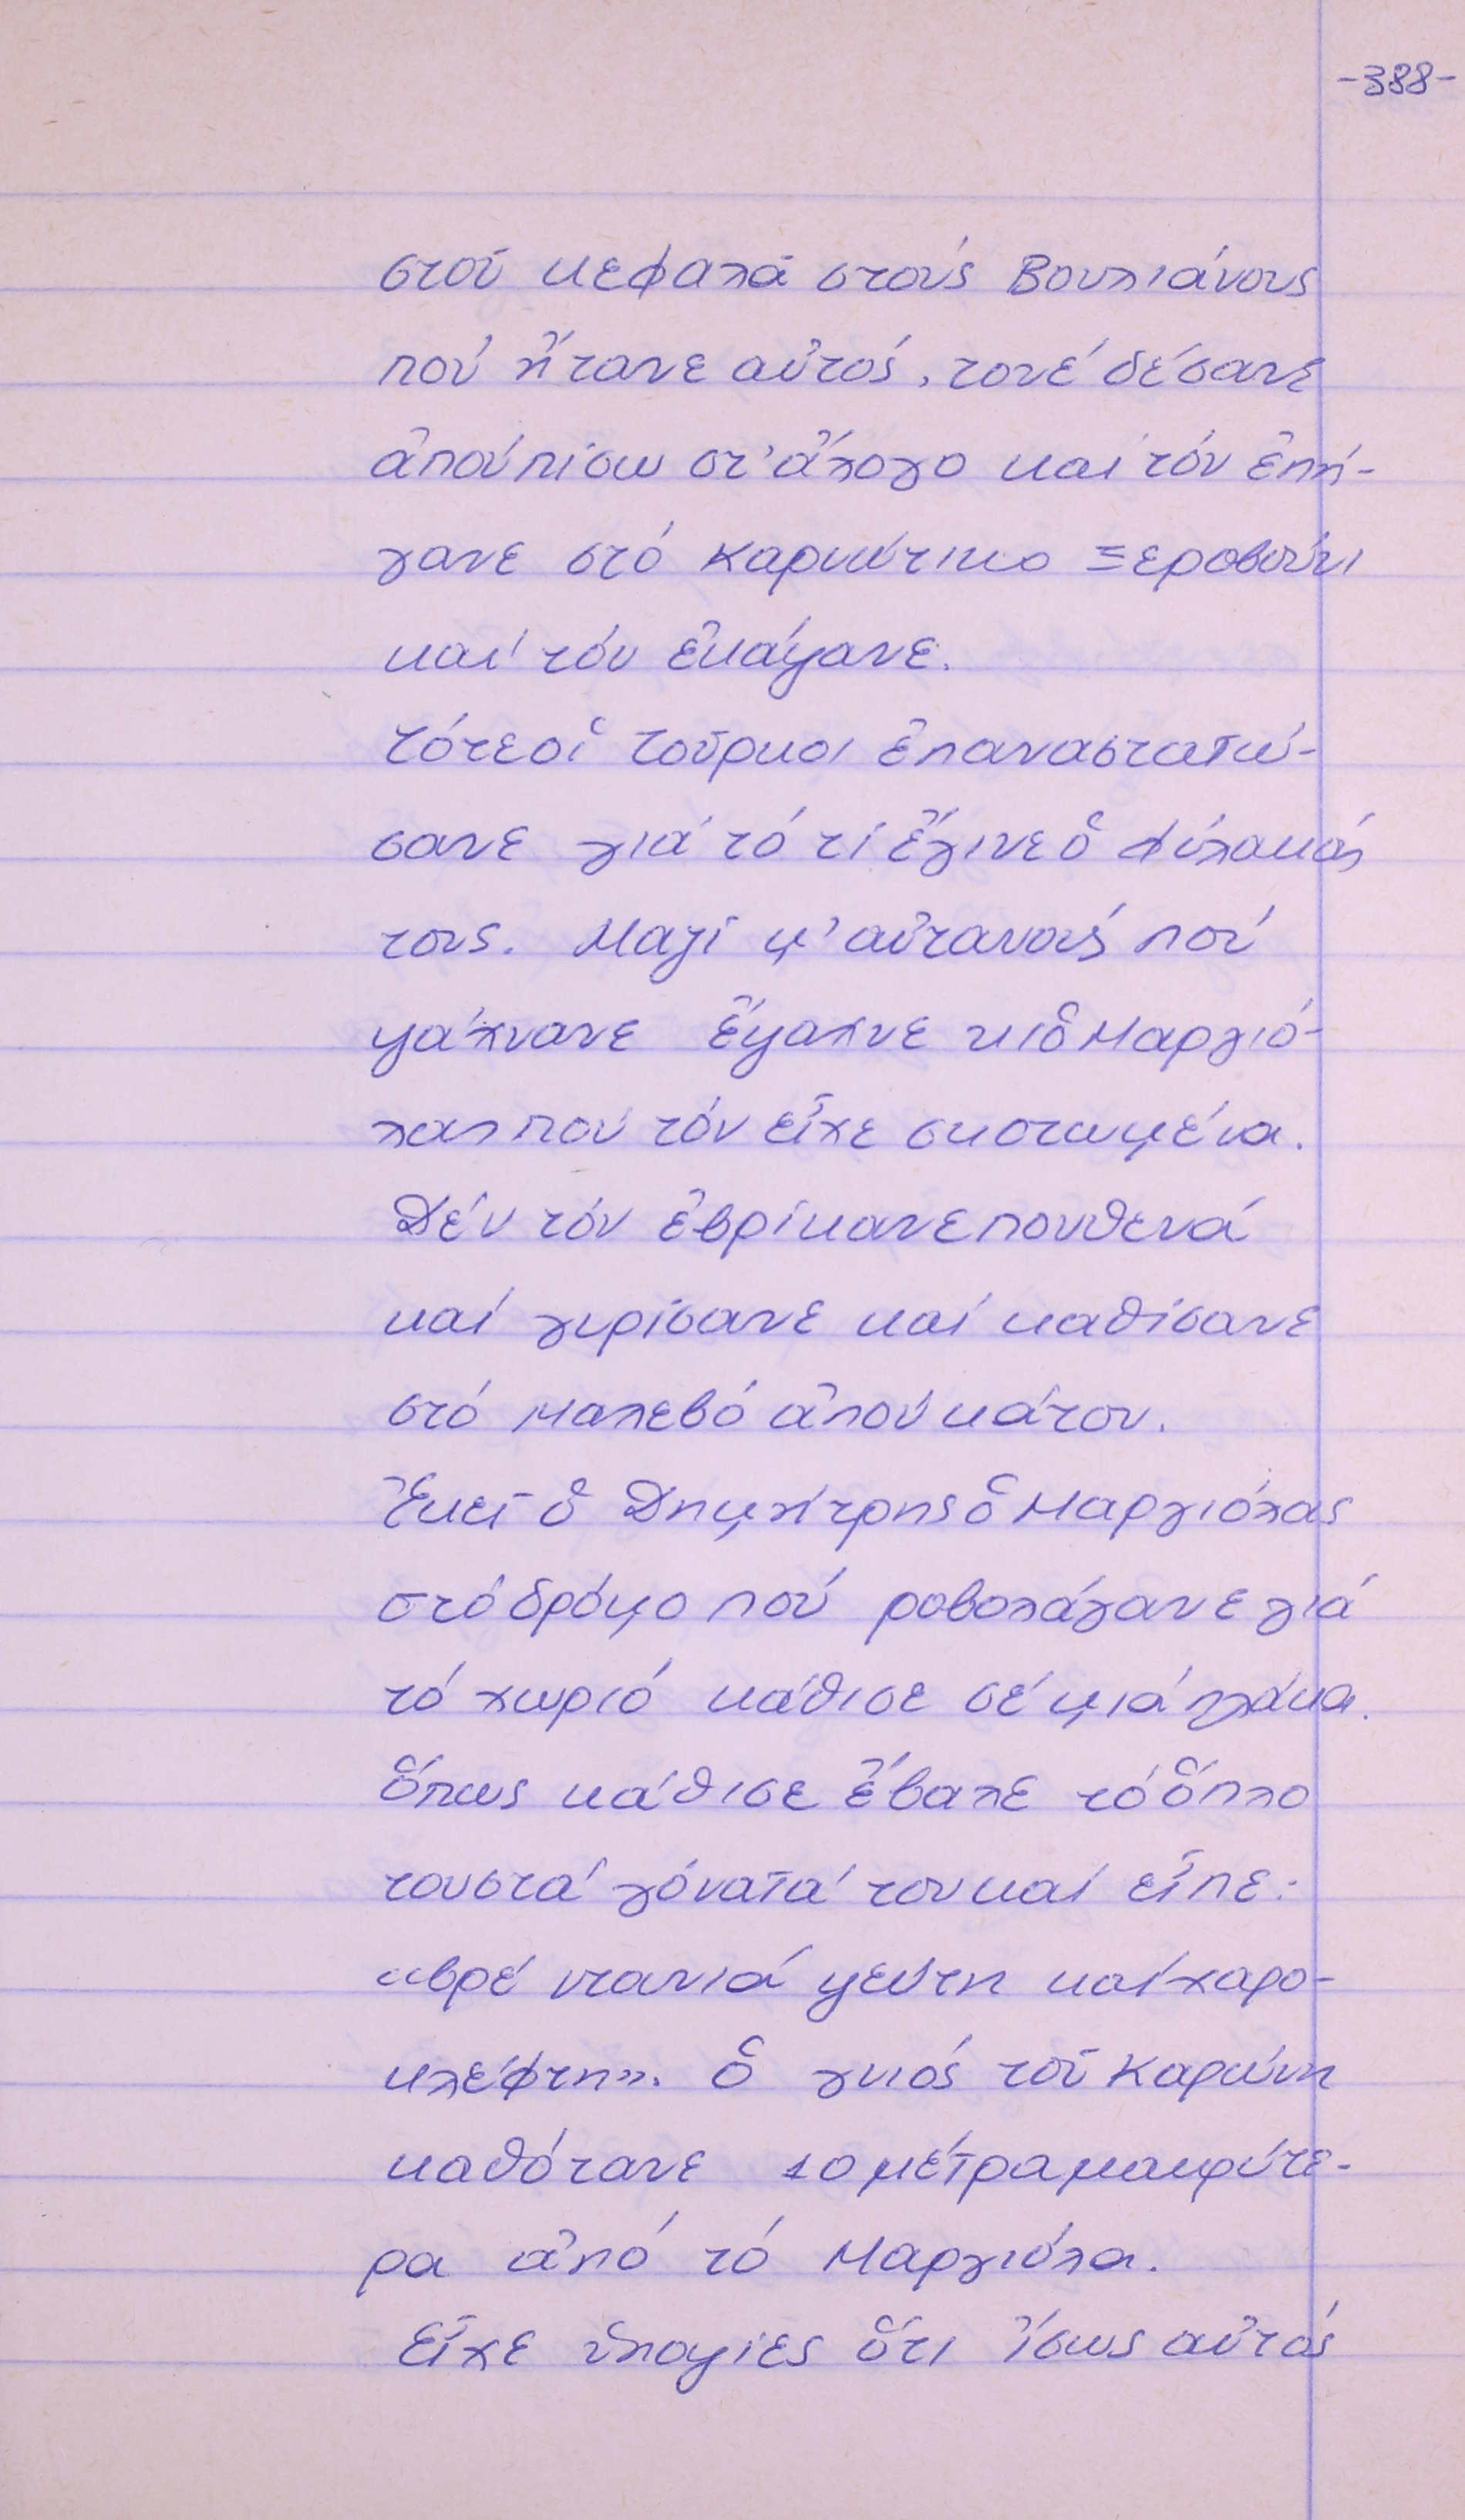 -388-
στοῦ κεφαλᾶ στούς Βουλιάνους
πού ἤτανε αὐτός, τονέ δέσανε
ἀπουπίσω στ' ἄλογο καί τόν ἐπή-
γανε στό Καρυώτικο Ξεροβούνι
καί τόν ἐκάψανε.
τότεοἱ τοῦρκοι ἐπαναστατώ-
σανε γιά τό τί ἔγινεὁ φύλακάς
τους. Μαζί μ' αὐτανούς πού
ψάχνανε ἔψαχνε κιὁ Μαργιό-
λας πού τόν εἶχε σκοτωμένα.
Δέν τόν ἐβρίκανε πουθενά
καί γυρίσανε καί καθίσανε
στό Μαλεβό ἀπουκάτου.
Ἐκεῖ ὁ Δημήτρης ὁ Μαργιόλας
στό δρόμο πού ροβολάγανε γιά
τό χωριό κάθισε σέ μιά πλάκα.
ὅπως κάθισε ἔβαλε τό ὅπλο
τουστά γόνατά του καί εἶπε:
«βρέ ντανιά ψεύτη καί χαρο-
κλέφτη». ὁ γυιός τοῦ Καρώνη
καθότανε 10 μέτρα μακρύτε-
ρα ἀπό τό Μαργιόλα.
Εἶχε ὑποψίες ὅτι ἴσως αὐτός